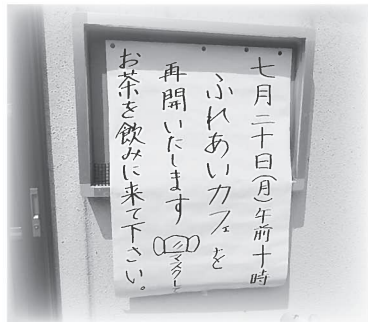 七月二十日(月)午前十時
ふれあいカフェを
再開いたします
マスクして
お茶を飲みに来て下さい。